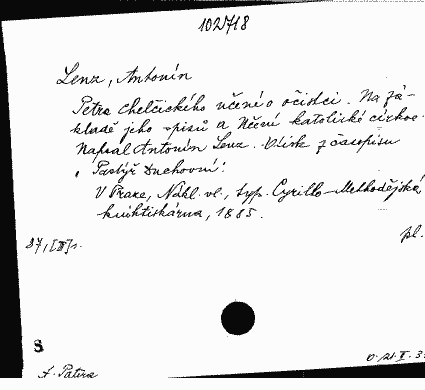 102718
Lenz, Antonín
Petra Chelčického učení o očistci. Na zá-
kladě jeho spisů a Učení katolické církve
Napsal Antonín Lenz. Otisk z časopisu
„Pastýř Duchovní".
V Praze, Nákl. vl., typ. Cyrillo-Methodějská
knihtiskárna, 1885.
pl.
87, [II] s.
8
A. Patera